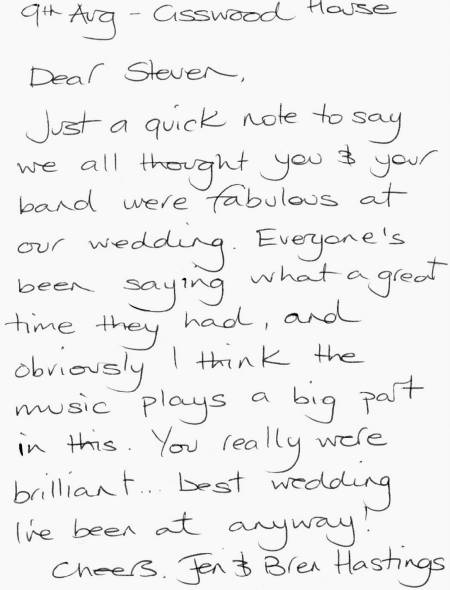 9th Aug - Cisswood House
Dear Steven,
Just a quick note to say
we all thought you & your
band were fabulous at
our wedding. Everyone's
been saying what a great
time they had, and
obviously I think the
music plays a big part
in this. You really were
brilliant... best wedding
I've been at anyway!
Cheers. Jen & Bren Hastings